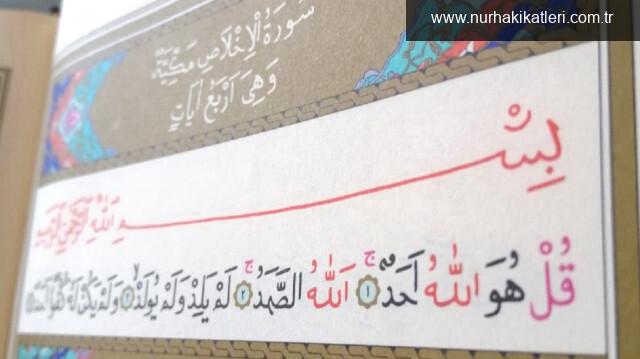 www.nurhakikatleri.com.tr
سُورَةُ الْاِخْلَاصِ مَكِّيَّةٌ
وَهِىَ اَرْبَعُ اٰيَاتٍ
بِسْمِ اللّٰهِ الرَّحْمٰنِ الرَّحِيمِ
قُلْ هُوَ اللّٰهُ اَحَدٌۚ ﴿١﴾ اَللّٰهُ الصَّمَدُۚ ﴿٢﴾ لَمْ يَلِدْ وَلَمْ يُولَدْۙ ﴿٣﴾ وَلَمْ يَكُنْ لَهُ كُفُوًا اَحَدٌ